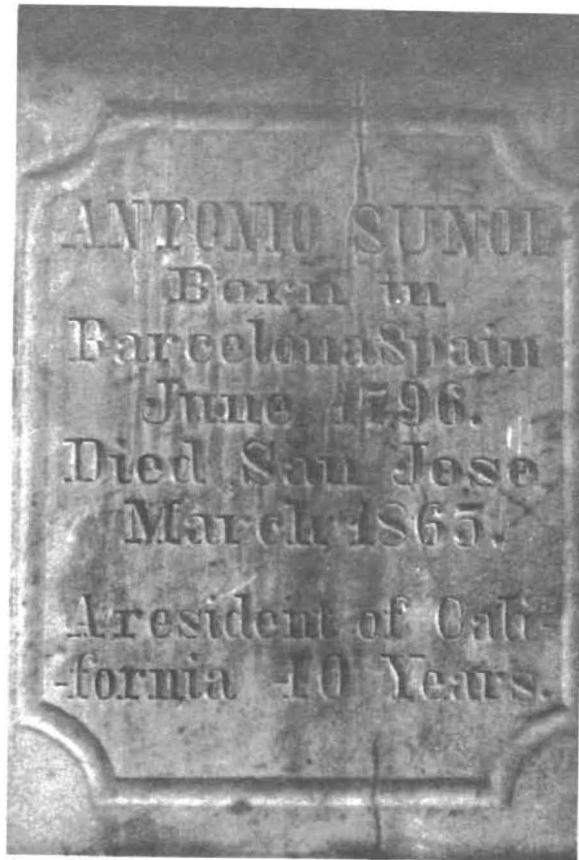 ANTONIO SUNOL
Born in
Barcelona Spain
June 1796.
Died San Jose
March 1865.
A resident of Cali-
-fornia 40 Years.